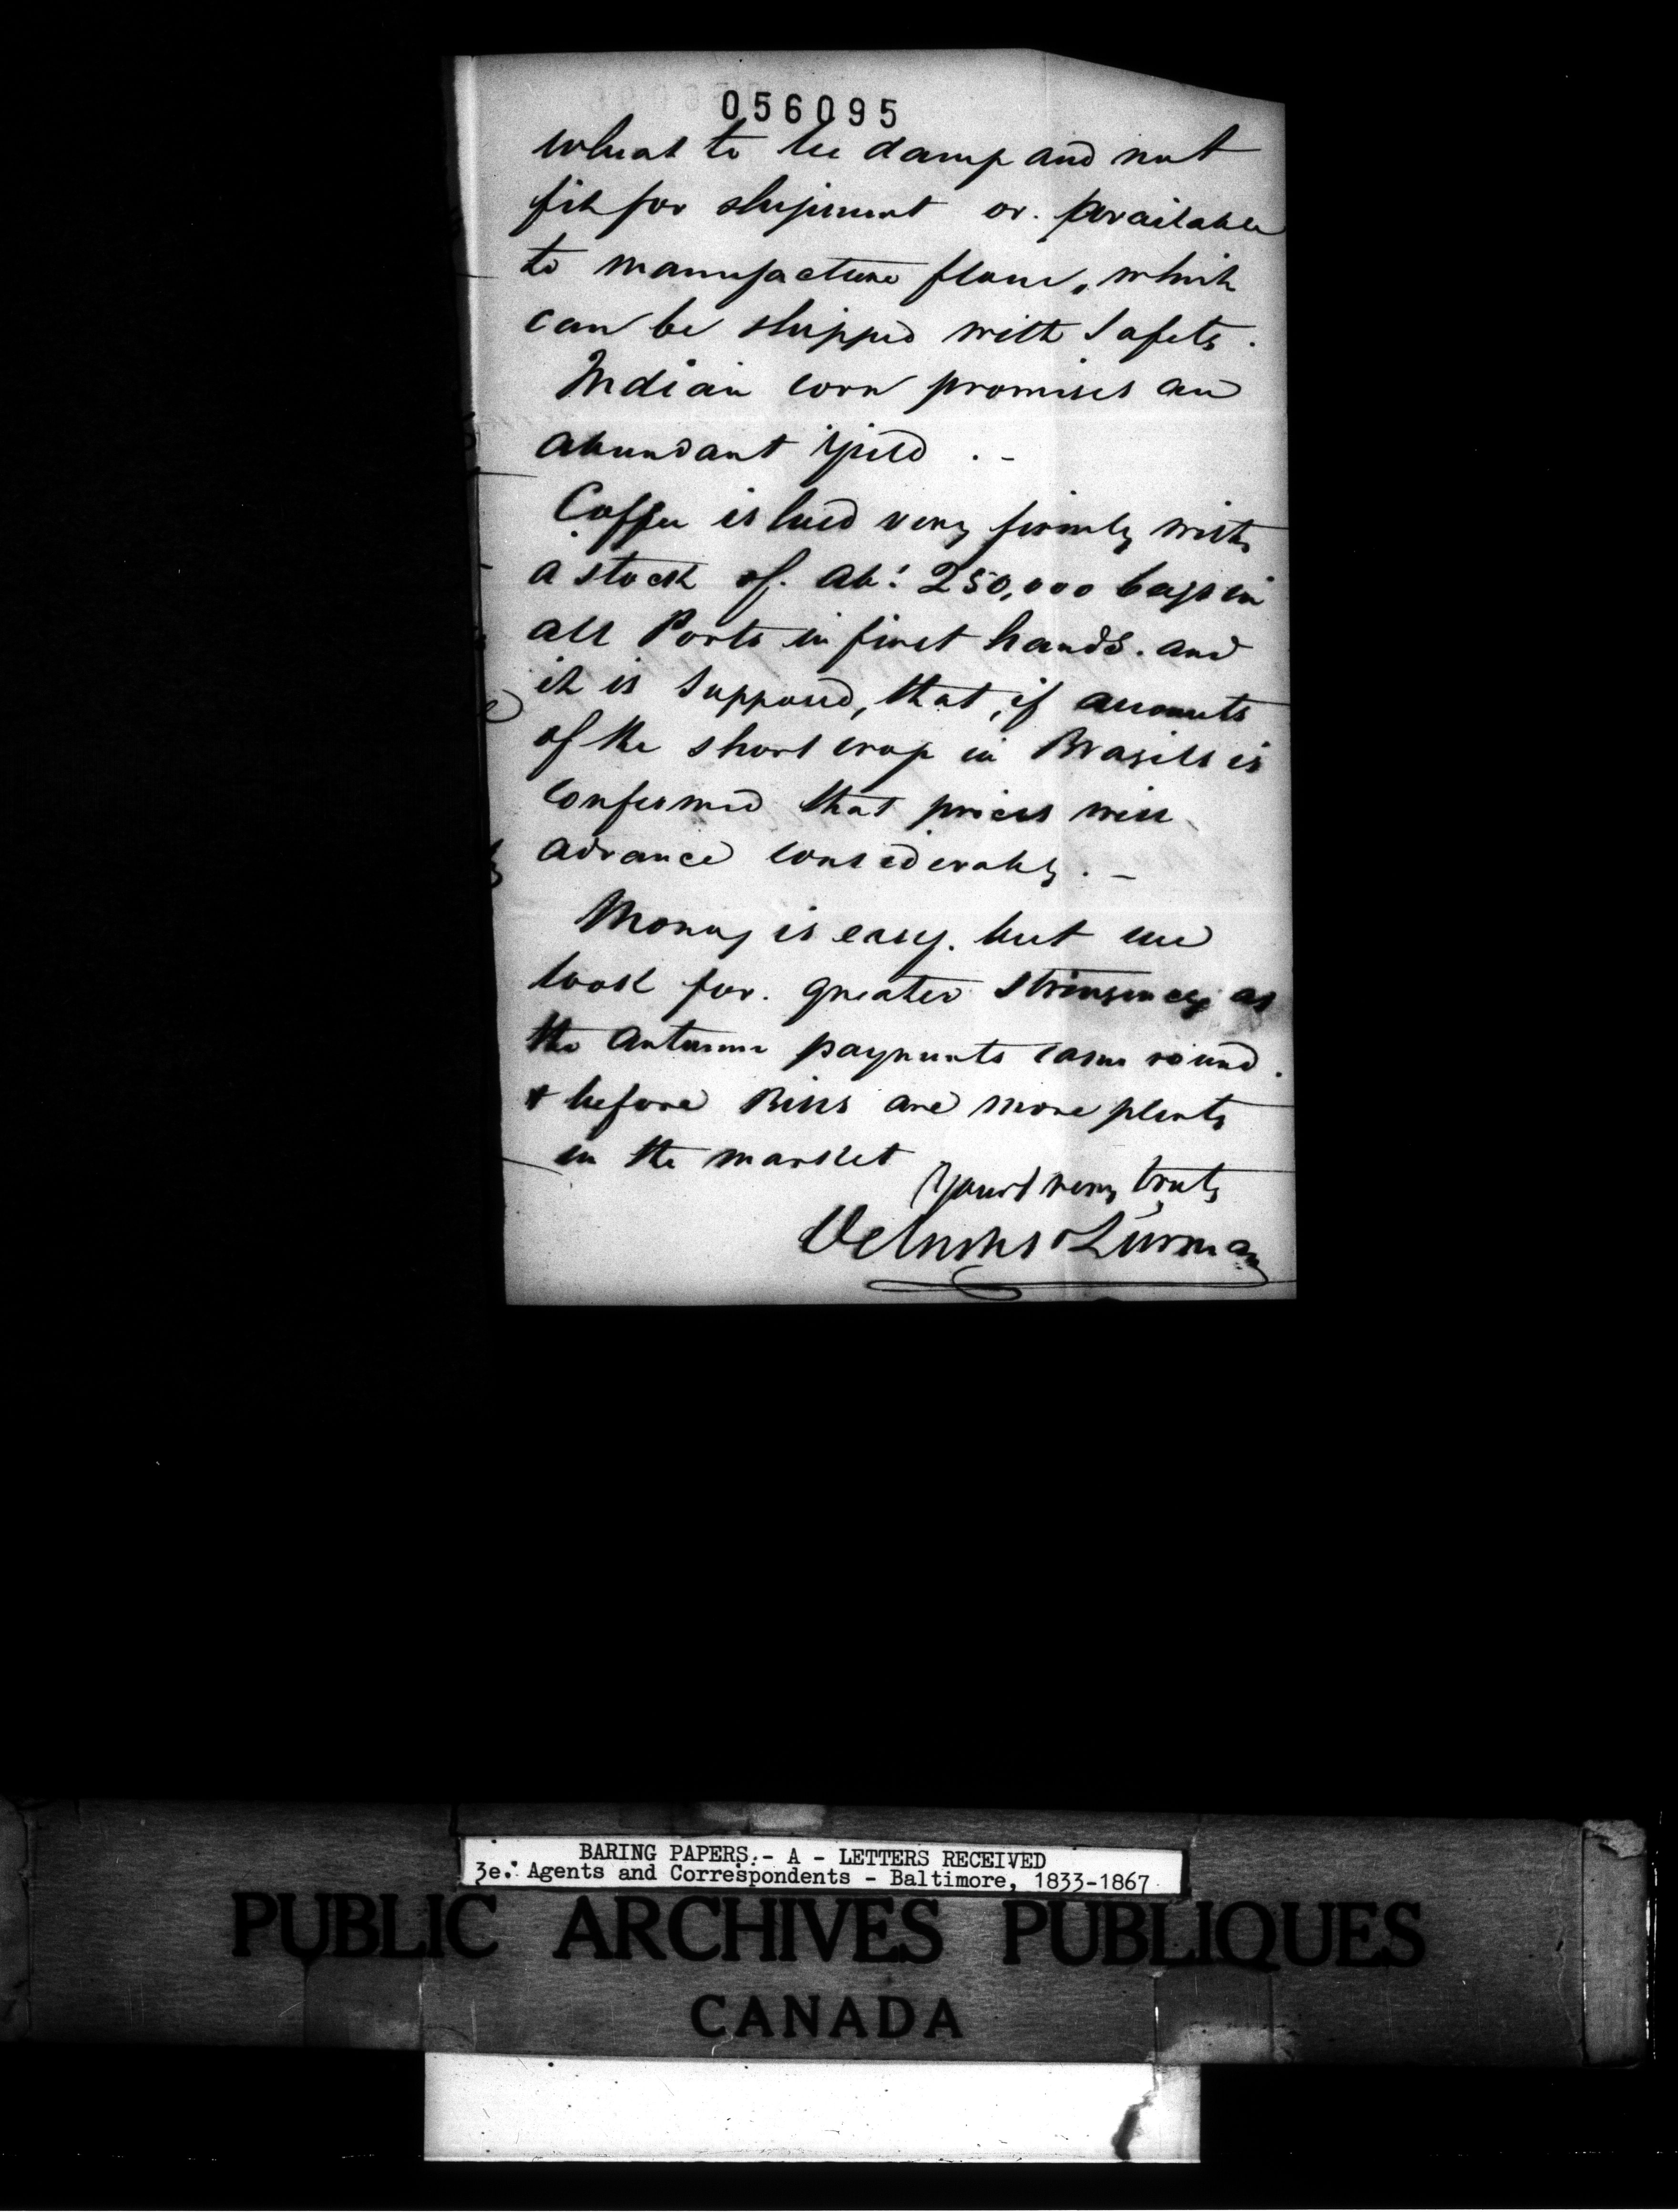 056095
wheat to be damp and not
fit for shipment or available
to manufacture flour, which
can be shipped with safety.
Indian corn promises an
abundant yield . -
Coffee is held very firmly with
a stock of. abt. 250,000 bags in
all Ports in first hands. and
it is supposed, that, if accounts
of the short crop in Brazils is
confirmed that prices will
advance considerably. -
Money is easy. but we
look for. greater stringency as
the autumn payments come round.
& before Bills are more plenty
in the market
Yours very truly
Oelrichs & Lurman
BARING PAPERS.- A - LETTERS RECEIVED
3e. Agents and Correspondents - Baltimore, 1833-1867
PUBLIC ARCHIVES PUBLIQUES
CANADA